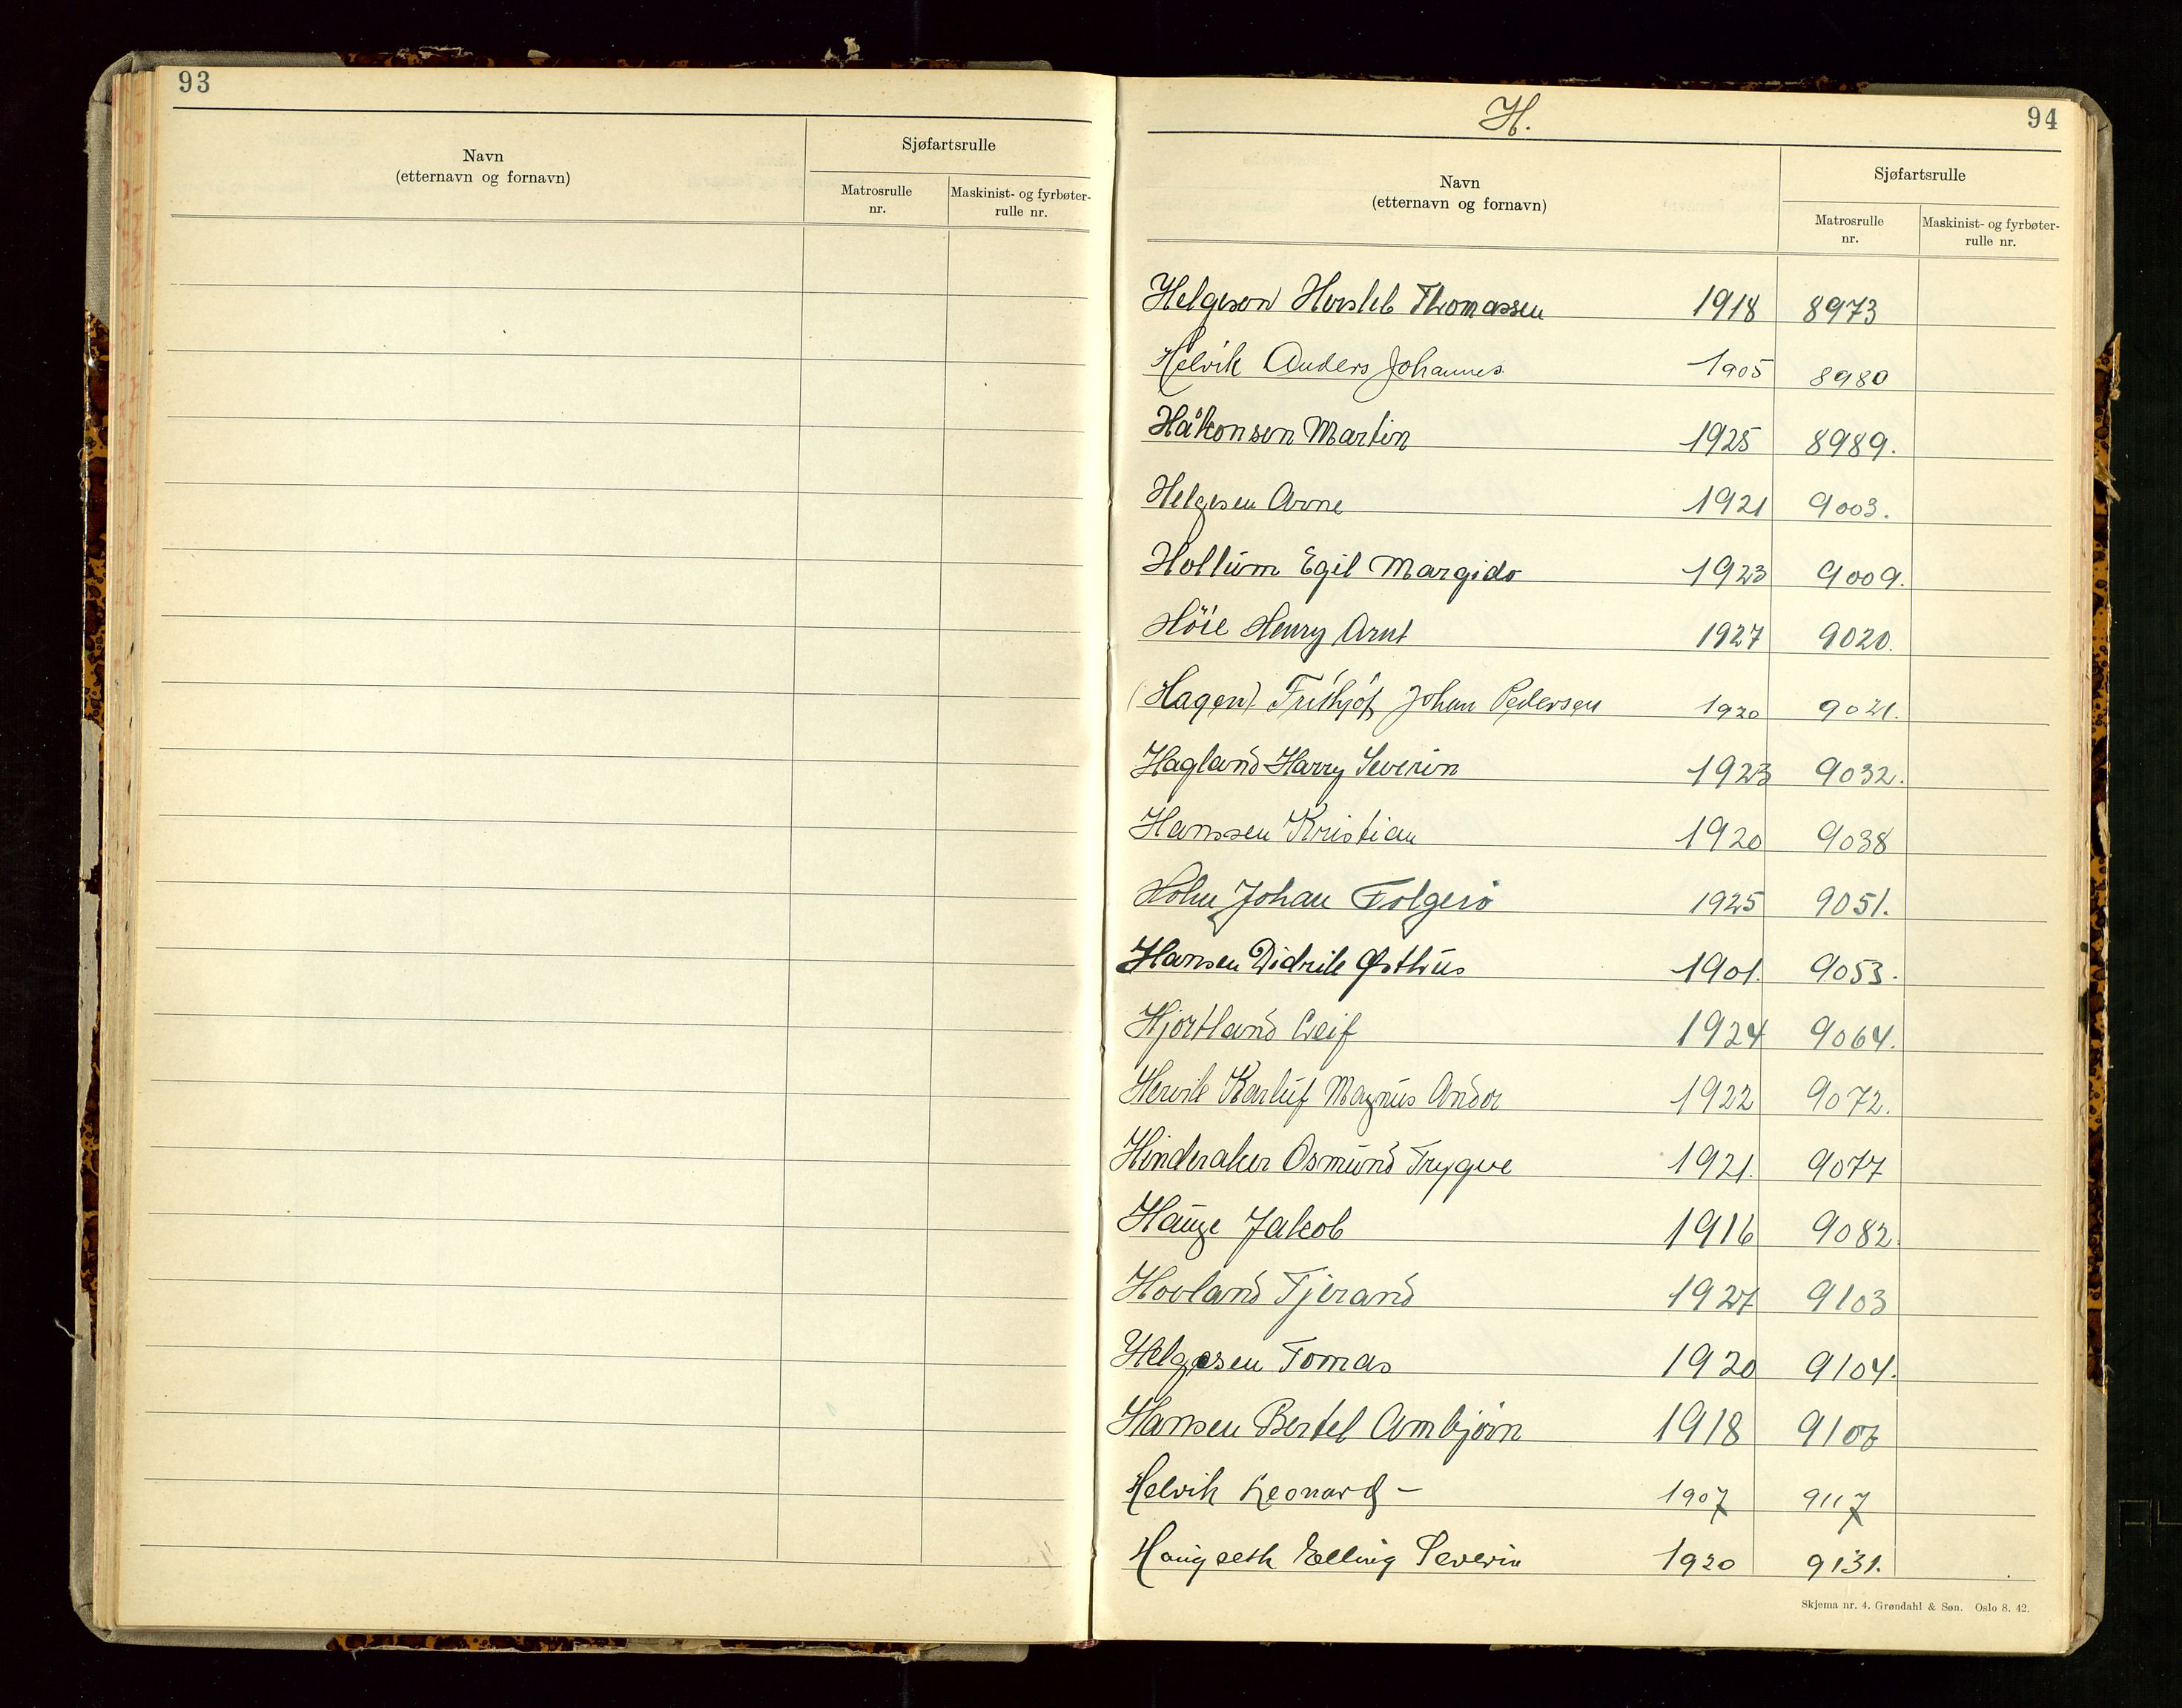 93
Navn
(etternavn og fornavn)
Sjøfartsrulle
Matrosrulle
nr.
Maskinist- og fyrbøter-
rulle nr.
H.
94
Navn
(etternavn og fornavn)
Sjøfartsrulle
Matrosrulle
nr.
Maskinist- og fyrbøter-
rulle nr.
Helgeson Hersleb Thomassen 1918 8973
Helvik Anders Johannes 1905 8980
Håkonsen Martin 1925 8989.
Helgesen Arne 1921 9003.
Hollum Egil Margido 1923 9009.
Höie Henry Arnt 1927 9020.
(Hagen) Frithjof Johan Pedersen 1920 9021.
Hagland Harry Severin 1923 9032.
Hanssen Kristian 1920 9038
Holm Johan Folgerö 1925 9051.
Hansen Didrik Østhus 1901. 9053.
Hjortland Leif 1924 9064.
Hervik Karluf Magnus Andor 1922 9072.
Hinderaker Osmund Trygve 1921. 9077
Hauge Jakob 1916 9082.
Hovland Tjerand 1927 9103
Helgesen Tomas 1920 9104.
Hansen Bertel Arnbjörn 1918
Helvik Leonard - 1907 9117
Haugseth Elling Severin 1920 9131.
Skjema nr. 4. Grøndahl & Søn. Oslo 8. 42.